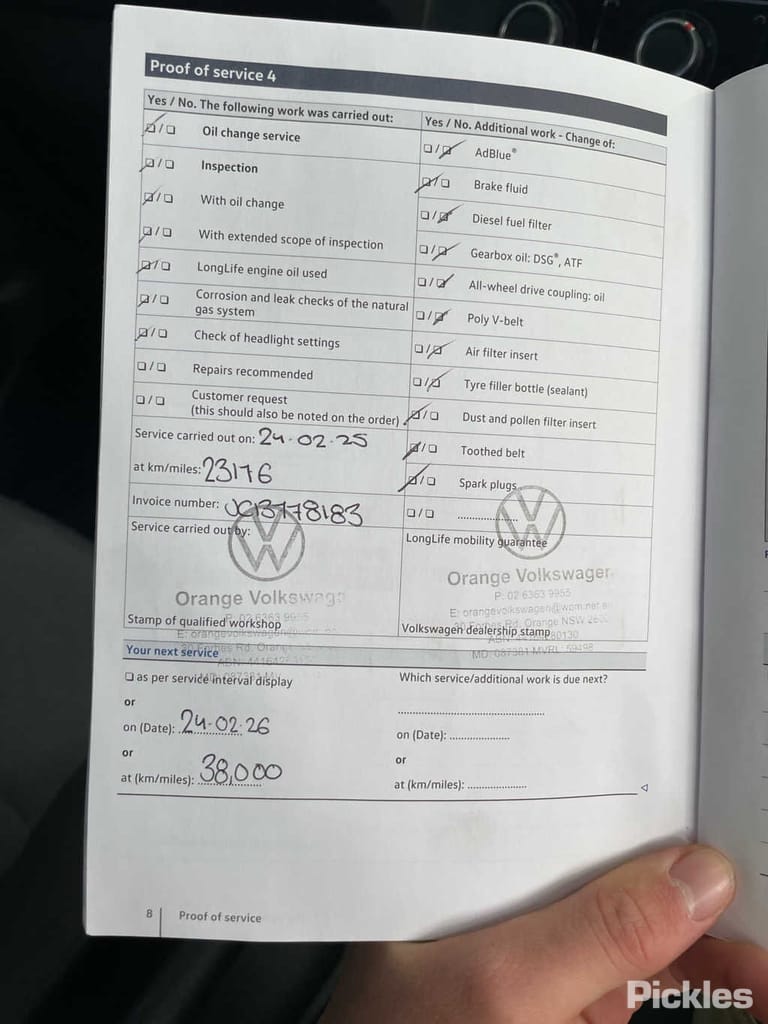 Proof of service 4
Yes / No. The following work was carried out:
Oil change service
Inspection
With oil change
With extended scope of inspection
LongLife engine oil used
Corrosion and leak checks of the natural
gas system
Check of headlight settings
Repairs recommended
Customer request
(this should also be noted on the order)
Service carried out on: 24.02.25
at km/miles: 23176
Invoice number: JC13778183
Service carried out by:
Orange Volkswage
Stamp of qualified workshop
Yes / No. Additional work - Change of:
AdBlue®
Brake fluid
Diesel fuel filter
Gearbox oil: DSG®, ATF
All-wheel drive coupling: oil
Poly V-belt
Air filter insert
Tyre filler bottle (sealant)
Dust and pollen filter insert
Toothed belt
Spark plugs
LongLife mobility guarantee
Orange Volkswagen
P: 02 6363 9955
E: orangevolkswagen@wpm.net.au
Forbes Rd, Orange NSW
Volkswagen dealership stamp
Your next service
as per service interval display
or
on (Date): 24.02.26
or
at (km/miles): 38,000
Which service/additional work is due next?
on (Date):
or
at (km/miles):
8 Proof of service
Pickles